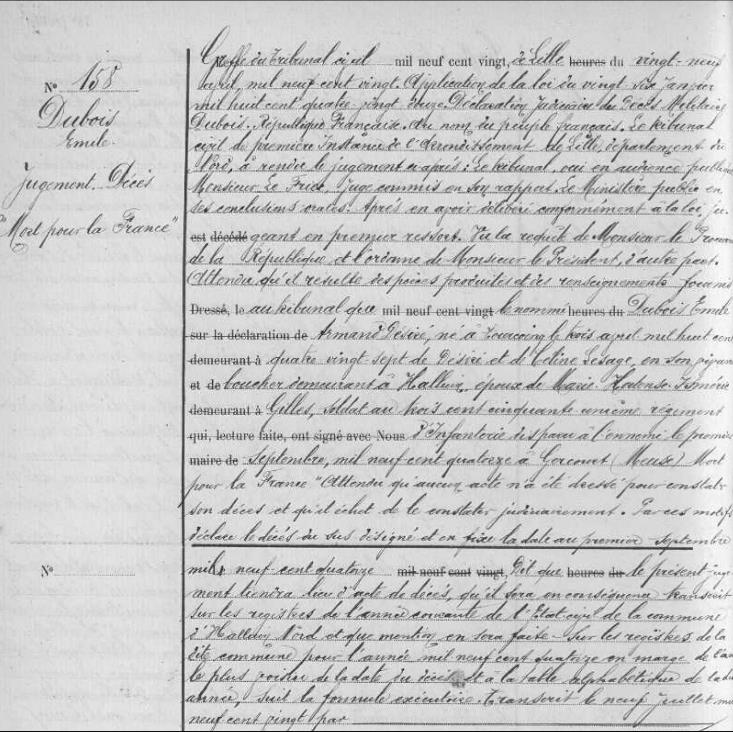 N° 158
Dubois
Emile
Jugement. Décès
"Mort pour la France"
Greffe du Tribunal civil mil neuf cent vingt, à Lille heures du vingt-neuf
avril, mil neuf cent vingt. Application de la loi du vingt six janvier
mil huit cent quatre vingt douze. Déclaration judiciaire du Décès Militaire
Dubois. République Française. Au nom du peuple français. Le tribunal
civil de première instance de l'arrondissement de Lille, département du
Nord, à rendu le jugement ci après: Le tribunal, oui en audience publique
Monsieur Le Frede, juge commis en son rapport. Le Ministère public en
ses conclusions orales. Après en avoir délibéré conformément à la loi, ju-
est décédé geant en premier ressort. Vu la requête de Monsieur le Procureur
de la République et l'ordonne de Monsieur le Président, d'autre part.
Attendu qu'il resulte des pièces produites et des renseignements fournis
Dressé, le au tribunal que mil neuf cent vingt le nommé heures du Dubois Emile
sur la déclaration de Armand Désiré, né à Tourcoing le trois avril mil huit cent
demeurant à quatre vingt sept de Désiré et de Celine Lesage, en son vivant
et de boucher demeurant à Halluin, époux de Marie Hortense Ismérie
demeurant à Gilles, soldat au trois cent cinquante unième régiment
qui, lecture faite, ont signé avec Nous d'Infanterie disparu à l'ennemi le premier
maire de Septembre, mil neuf cent quatorze à Gercourt (Meuse) Mort
pour la France" Attendu qu'aucun acte n'a été dressé pour constater
son décès et qu'il échet de le constater judiciairement. Par ces motifs
déclare le décès du sus désigné et en fixe la date au premier Septembre
N°
mil neuf cent quatorze mil neuf cent vingt, Dit que heures du le présent juge-
ment tiendra lieu d'acte de décès, qu'il sera en conséquence transcrit
sur les registres de l'année courante de l'Etat civil de la commune
d'Halluin Nord et que mention en sera faite sur les registres de la
dite commune pour l'année mil neuf cent quatorze en marge de l'acte
le plus voisin de la date du décès et à la table alphabétique de la dite
année, Suit la formule exécutoire. Transcrit le neuf Juillet mil
neuf cent vingt par